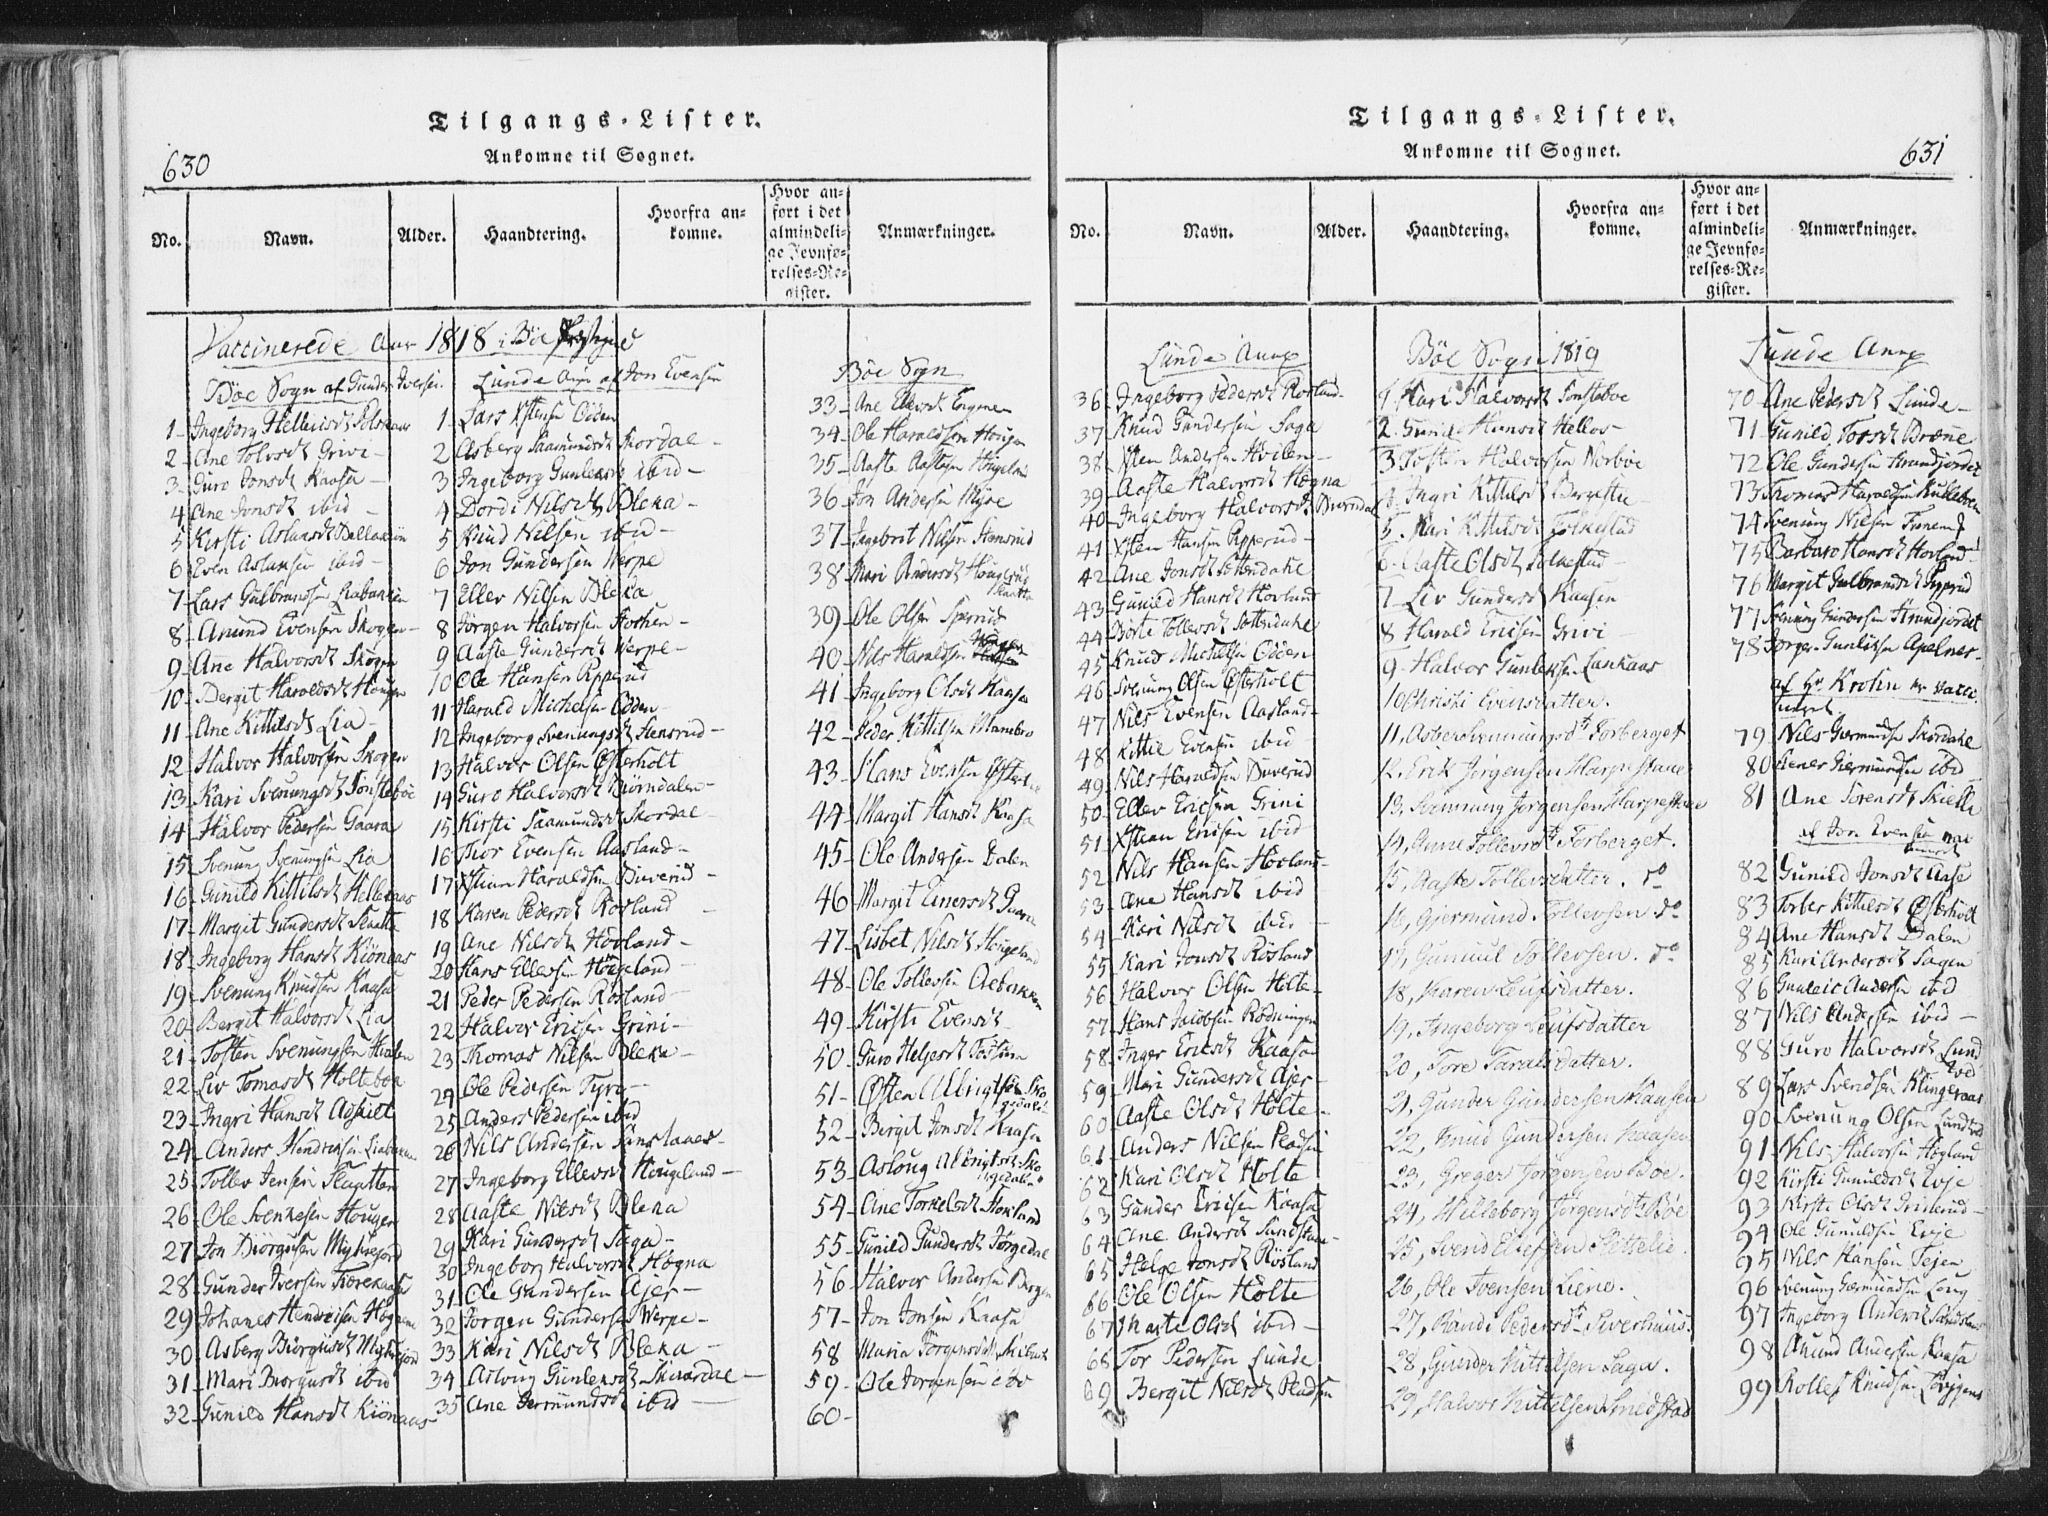 630
Tilgangs-Lister.
Ankomne til Sognet.
No.
Navn.
Alder.
Haandtering.
Hvorfra ankomne.
Hvor anført i det almindelige Jevnførelses-Register.
Anmærkninger.
Vaccinerede Aar 1818 i Böe
Böe Sogn af Gunder Iversen
1 Ingeborg
2 Ane Tolvsdt Grivi
3 Guro Jonsdt Kaasa
4 Ane Jonsdt ibid
5 Kirsti Aslansdt
6 Even Aslansen ibid
7 Lars Gulbransen
8 Anund Evensen Skogen
9 Ane Halvorsdt Skogen
10 Bergit Haroldsdt Hougen
11 Ane Kittilsdt Lia
12 Halvor Halvorsen Skogen
13 Kari Svenungsdt Tonsteboe
14 Halvor Pedersen Gaara
15 Svenung Svenungsen Lia
16 Gunild Kittilsdt Hellekaas
17 Margit Gundersdt Slaatta
18 Ingeborg Hansdt Kiönaas
19 Svenung Knudsen Kaasa
20 Bergit Halvorsdt Lia
21 Tosten Svenungsen
22 Liv Tomasdt Holteboe
23 Ingri Hansdt
24 Anders
25 Tollev Jensen Slaatten
26 Ole Svenkesen Hougen
27 Jon Biörgusen
28 Gunder Iversen
29 Johanes Hendricsen
30 Asberg Biorgusdt
31 Mari Biorgusdt ibid
32 Gunild Hansdt Kiönaas
Lunde Anx af Jon Evensen
1 Lars Xstensen Odden
2 Asberg Saamundsdt Skordal
3 Ingeborg Gunleksdt ibid
4 Dordi Nilsdt Bleka
5 Knud Nilsen ibid
6 Jon Gundersen Werpe
7 Ellev Nilsen Bleka
8 Jorgen Halvorsen
9 Aaste Gundersdt Werpe
10 Ole Hansen Ripperud
11 Harald Michelsen Odden
12 Ingeborg Svenungsdt Stensrud
13 Halvor Olsen Østerholt
14 Guro Halvorsdt Biörndalen
15 Kirsti Saamundsdt Skordal
16 Thor Evensen Aasland
17 Xstian Haraldsen Duverud
18 Karen Pedersdt Rosland
19 Ane Nilsdt Hovland
20 Hans Ellevsen Hougeland
21 Peder Pedersen Rosland
22 Halvor Ericsen Grini
23 Thomas Nilsen Bleka
24 Ole Pedersen
25 Anders Pedersen ibid
26 Nils Andersen
27 Ingeborg Ellevsdt Hougeland
28 Aaste Nilsdt Bleka
29 Kari Gundersdt Saga
30 Ingeborg Halvorsdt Høgna
31 Ole Gundersen Ajer
32 Jorgen Gundersen Werpe
33 Kari Nilsdt Bleka
34 Asloug Gunleksdt Skaardal
35 Ane Germundsdt ibid
Böe Sogn
33 Ane Ellevsdt
34 Ole Haraldsen Hougen
35 Aaste
36 Jon Andersen Myre
37 Ingebret Nilsen Stensrud
38 Mari Andersdt
39 Ole Olsen
40 Nils Haraldsen
41 Ingeborg Olsdt Kaasa
42 Peder Kittilsen
43 Hans Evensen
44 Margit Hansdt Kaasa
45 Ole Andersen Dalen
46 Margit Einersdt Gaara
47 Lisbet Nilsdt Hougeland
48 Ole Tollevsen
49 Kirsti Evensdt
50 Guro Helgesdt
51 Østen
52 Birgit Jonsdt Kaasa
53 Asloug
54 Ane Torkelsdt Hovland
55 Gunild Gundersdt
56 Halvor Andersen
57 Jon Jonsen Kaasa
58 Maria Jörgensdatt
59 Ole Jorgensen ibid
60
631
Tilgangs-Lister.
Ankomne til Sognet.
No.
Navn.
Alder.
Haandtering.
Hvorfra ankomne.
Hvor anført i det almindelige Jevnførelses-Register.
Anmærkninger.
Lunde Anx
36 Ingeborg Pedersdt Rosland
37 Knud Gundersen Saga
38 Xsten Andersen Hvilen
39 Aaste Halvorsdt Høgna
40 Ingeborg Halvorsdt
41 Xsten Hansen Ripperud
42 Ane Jonsdt Sottendahl
43 Gunild Hansdt Hovland
44 Börte Tollevsdt Sottendahl
45 Knud Michelsen Odden
46 Svenung Olsen Østerholt
47 Nils Evensen Aasland
48 Kittil Evensen ibid
49 Nils Haraldsen Duverud
50 Ellev Ericsen Grini
51 Xstian Ericsen ibid
52 Nils Hansen Hovland
53 Ane Hansdt ibid
54 Kari Nilsdt ibid
55 Kari Jonsdt Rosland
56 Halvor Olsen Holte
57 Hans Jacobsen Rodningen
58 Inger Ericsdt Kaasa
59 Mari Gundersdt Ajer
60 Aaste Olsdt Holte
61 Anders Nilsen Pladsen
62 Kari Olsdt Holte
63 Gunder Ericsen Kaasa
64 Ane Andersdt
65 Helge Jonsdt Rösland
66 Ole Olsen Holte
67 Maste Olsdt ibid
68 Tor Pedersen Lunde
69 Bergit Nilsdt Pladsen
Böe Sogn 1819
1 Kari Halvorsdt Tonsteboe
2 Hellos
3 Tosten Halvorsen Norboe
4 Ingri Kittilsdt
5 Kari Kittilsdt Folkestad
6 Aaste Olsdt Folkestad
7 Liv Gundersdt Kaasen
8 Harald Ericsen Grivi
9 Halvor Gunleksen Lankaas
10 Christi Evensdatter.
11, Asber Svennungsdtr Forberget
12, Erik Jørgensen Harpestane
13, Svennung Jørgensen Harpestane
14, Anne Tollevsdtr Forberget.
15, Aaste Tollevsdatter. do
16, Gjermund Tollevsen do
17, Gunuul Tollevsen. do
18, Karen Leifsdatter.
19, Ingeborg Leifsdatter
20, Tore Taralsdatter.
21, Gunder Gundersen Kaasen
22, Knud Gundersen Kaasen
23, Greger Jörgensen Böe.
24, Helleborg Jörgensdt Böe
25, Svend
26, Ole Svensen Lieno.
27, Randi Pedersdtr
28, Gunder Kittilsen Saga.
29, Halvor Kittelsen
Lunde Anx
70 Ane Pedersdt Lunde
71 Gunild Torsdt Bræne
72 Ole Gundersen Strandjordet
73 Thomas Haraldsen
74 Svenung Nilsen
75 Barbaro Hansdt Hovland
76 Margit Gulbransdt Ripperud
77 Svenung Gundersen Strandjordet
78 Jorgen Gunliksen Apelnes
af Hr Krohn er vacc
79 Nils Giermundsen Skordahl
80 Einer Giermundsen ibid
81 Ane Sorensdt Skiella
af Jon Evensen
82 Gunild Jonsdt Aase
83 Torber Kittilsdt Østerholt
84 Ane Hansdt Dalen
85 Kari Andersdt Sagen
86 Gunleic Andersen ibid
87 Nils Andersen ibid
88 Guro Halvorsdt Lund
89 Lars Svendsen
90 Svenung Olsen
91 Nils Halvorsen Høgland
92 Kirsti Gunuldsdt Evje
93 Kirsti Olsdt
94 Ole Gunuldsen Evje
95 Nils Hansen Tejen
96 Svenung Giermundsen
97 Ingeborg Andersdt
98 Anund Andersen Kaasa
99 Rollef Knudsen